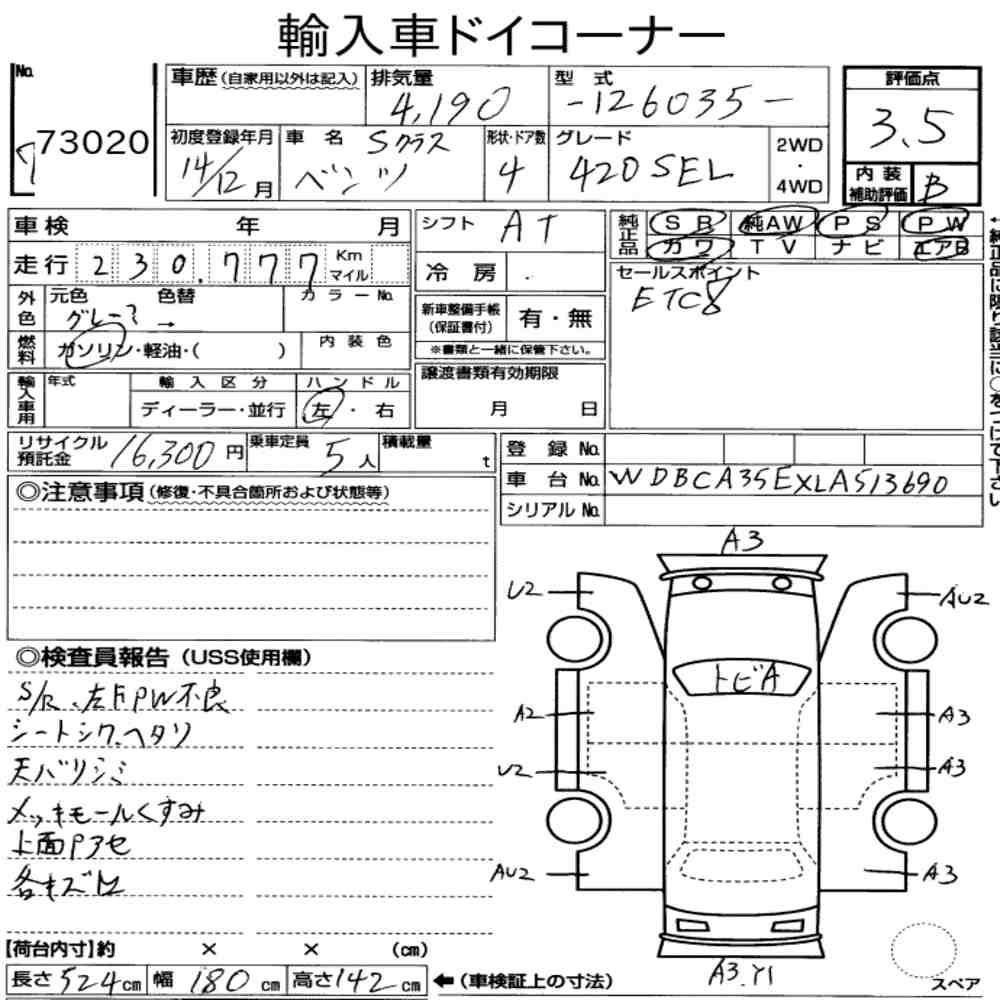 輸入車ドイコーナー
No. 73020
車歴(自家用以外は記入) 排気量 4,190 型式 -126035- 評価点 3.5
初度登録年月 14/12月 車名 Sクラス ベンツ 形状・ドア数 4 グレード 420SEL 2WD・4WD 内装補助評価 B
車検 年 月
走行 230.777 Km マイル
シフト AT
冷房
純正品 SR 純AW PS PW
カワ TV ナビ エアB
外色 元色 グレーⅡ → 色替 カラーNo.
セールスポイント
ETC
新車整備手帳(保証書付) 有・無
※書類と一緒に保管下さい。
燃料 ガソリン・軽油・( ) 内装色
輸入車用 年式 輸入区分 ハンドル
ディーラー・並行 左・右
譲渡書類有効期限
月 日
リサイクル預託金 16,300円 乗車定員 5人 積載量 t
登録No.
車台No. WDBCA35EXLA513690
シリアルNo.
◎注意事項(修復・不具合箇所および状態等)
◎検査員報告(USS使用欄)
S/R、左FPW不良
シートシワ、ヘタリ
天バリシミ
メッキモールくすみ
上面Pアセ
各キズ凹
A3
U2 AU2
トビA
A2 A3
U2 A3
AU2 A3
A3.Y1
スペア
【荷台内寸】約 × × (cm)
長さ524cm 幅180cm 高さ142cm ←(車検証上の寸法)
←純正品に限り該当に○をつけて下さい